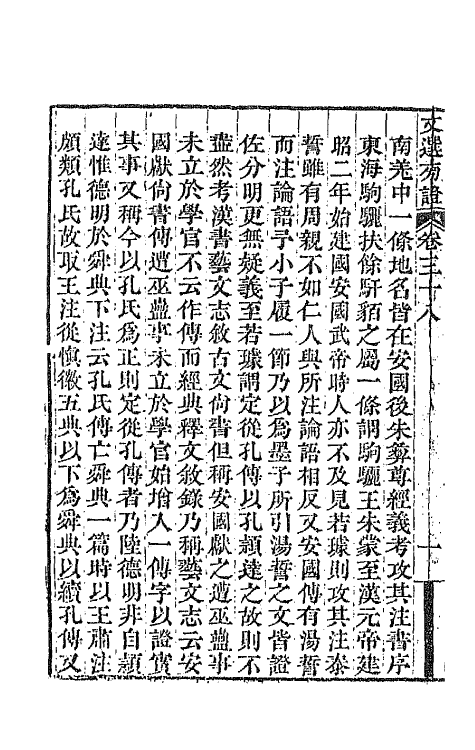 文選旁證 卷三十八 一
南羌中一條地名皆在安國後朱彝尊經義考攻其注書序
東海駒驪扶餘馯貊之屬一條謂駒驪王朱蒙至漢元帝建
昭二年始建國安國武帝時人亦不及見若璩則攻其注泰
誓雖有周親不如仁人與所注論語相反又安國傳有湯誓
而注論語予小子履一節乃以為墨子所引湯誓之文皆證
佐分明更無疑義至若璩謂定從孔傳以孔穎達之故則不
盡然考漢書藝文志敘古文尚書但稱安國獻之遭巫蠱事
未立於學官不云作傳而經典釋文敘錄乃稱藝文志云安
國獻尚書傳遭巫蠱事未立於學官始增入一傳字以證實
其事又稱今以孔氏為正則定從孔傳者乃陸德明非自穎
達惟德明於舜典下注云孔氏傳亡舜典一篇時以王肅注
頗類孔氏故取王注從慎徽五典以下為舜典以續孔傳又